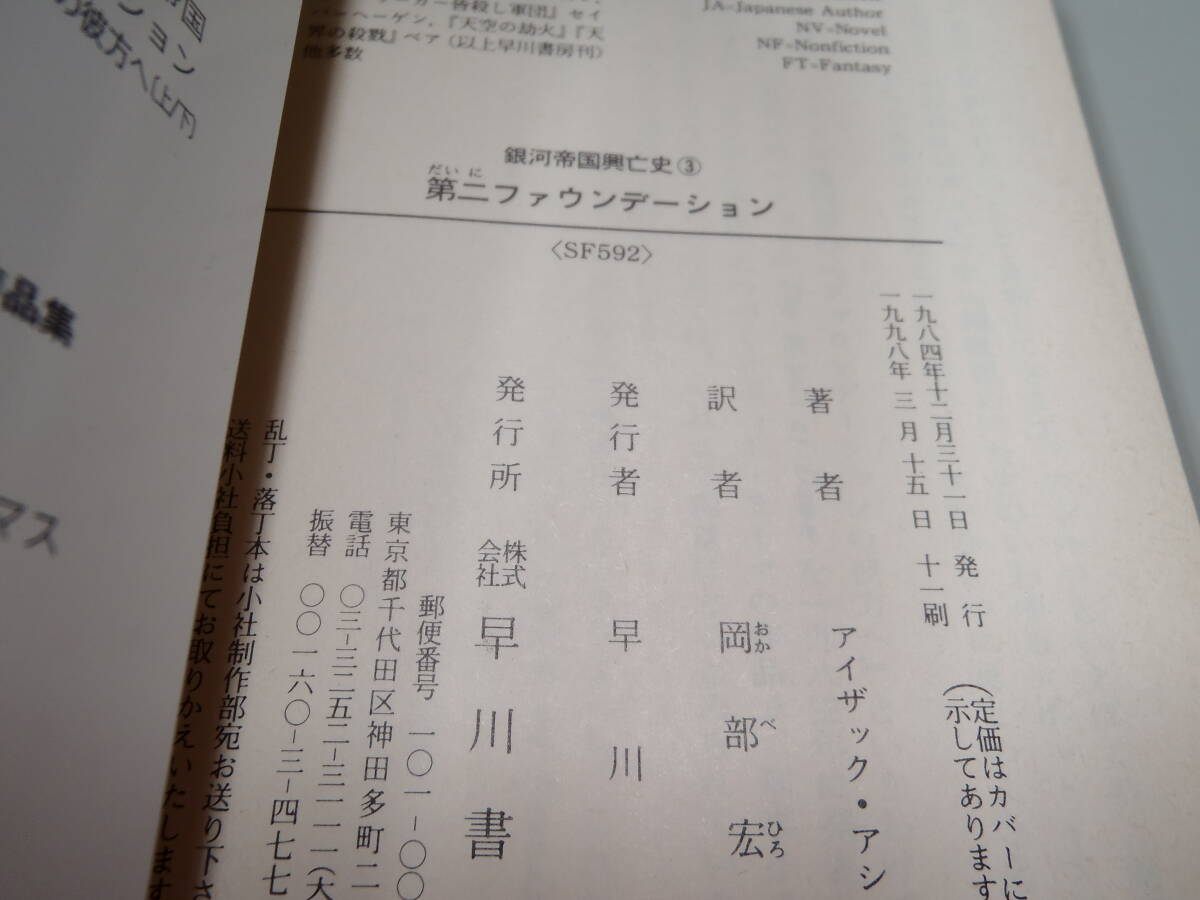 JA-Japanese Author
NV-Novel
NF-Nonfiction
FT-Fantasy
皆殺し軍団』セイ
バーヘーゲン,『天空の劫火』『天
界の殺戮』ベア(以上早川書房刊)
他多数
銀河帝国興亡史③
だい に
第二ファウンデーション
〈SF592〉
一九八四年十二月三十一日 発行
一九九八年 三月 十五日 十一刷
(定価はカバーに
示してあります
著者 アイザック・アシ
訳者 岡部宏
おか べ ひろ
発行者 早川
発行所 株式会社 早川書
郵便番号 一〇一-〇〇
東京都千代田区神田多町二
電話 〇三-三二五二-三一一一(大
振替 〇〇一六〇-三-四七七
乱丁・落丁本は小社制作部宛お送り下さ
送料小社負担にてお取りかえいたします
国
ション
の彼方へ〔上下〕
品集
マス